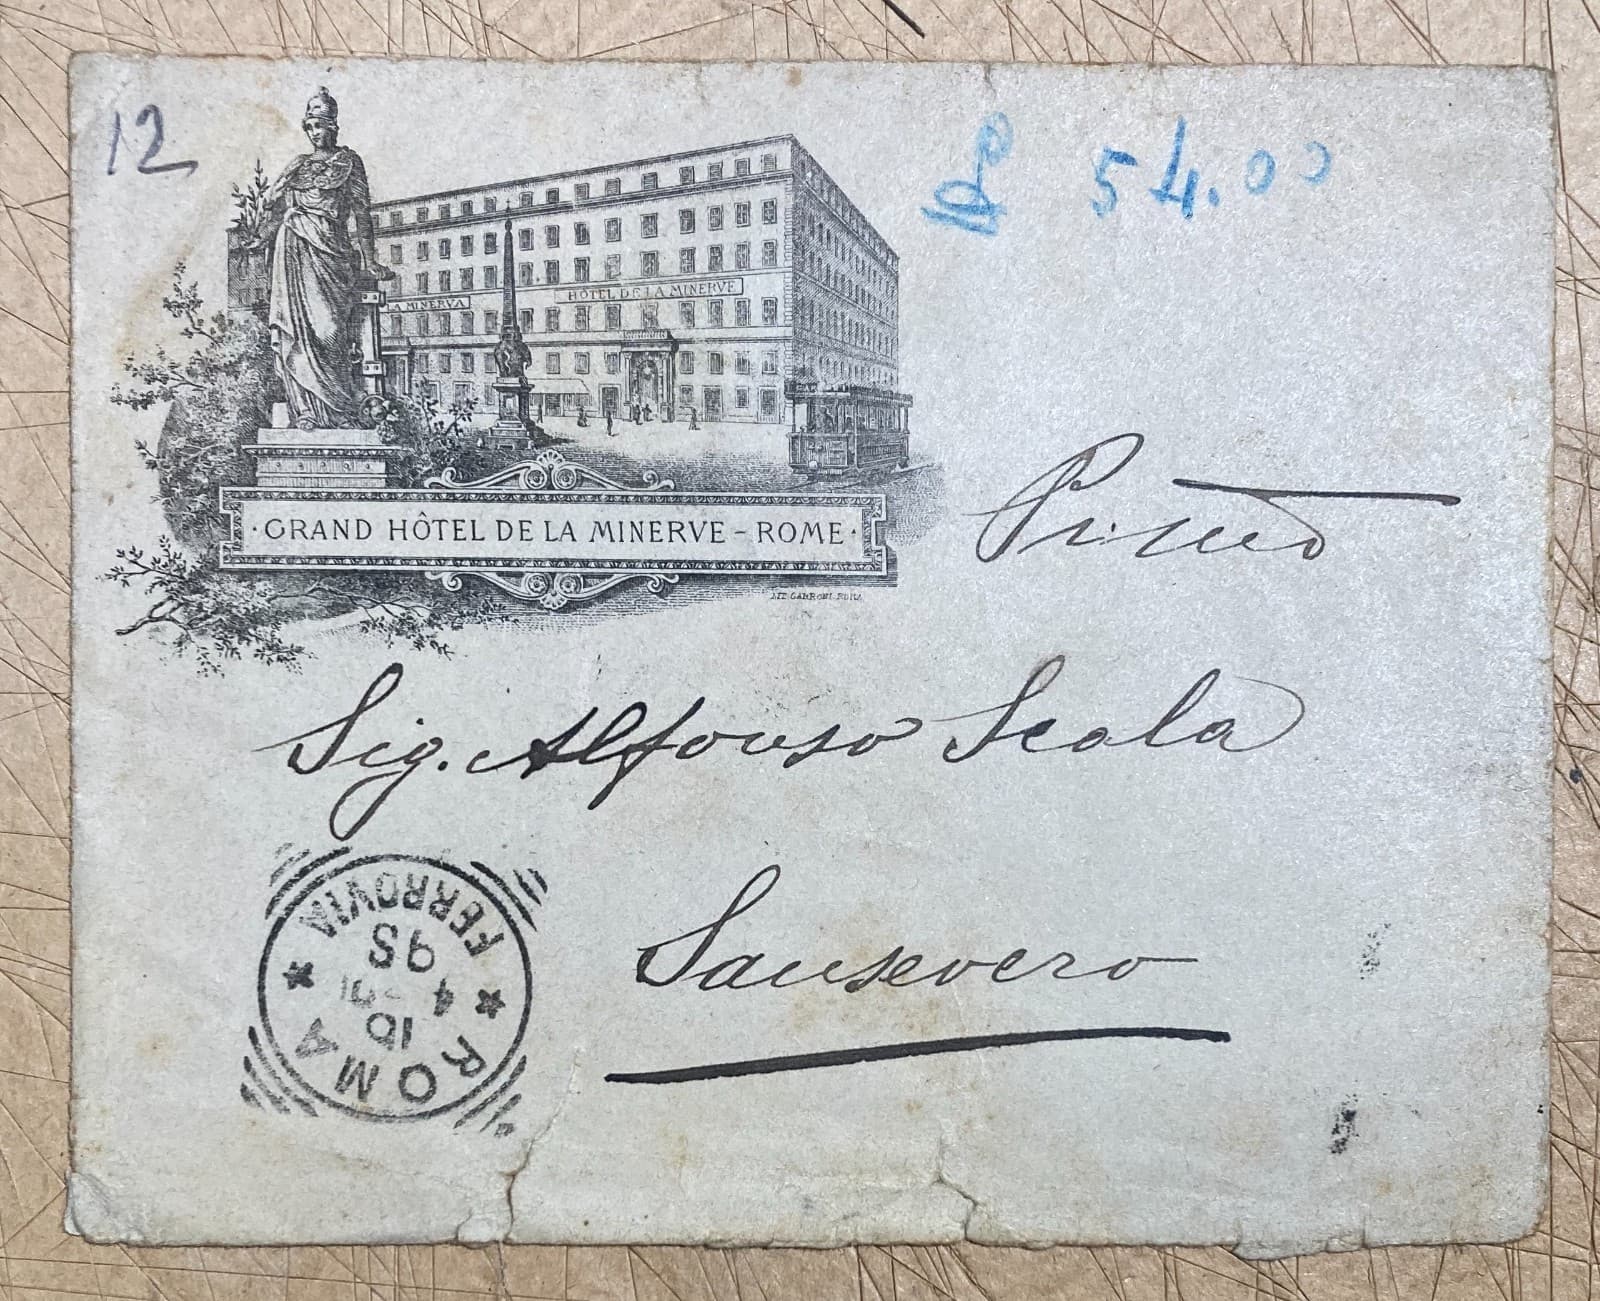 12
54.00
LA MINERVA
HÔTEL DE LA MINERVE
· GRAND HÔTEL DE LA MINERVE – ROME ·
Sig. Alfonso Scala
Sansevero
ROMA
FERROVIA
10
4
95